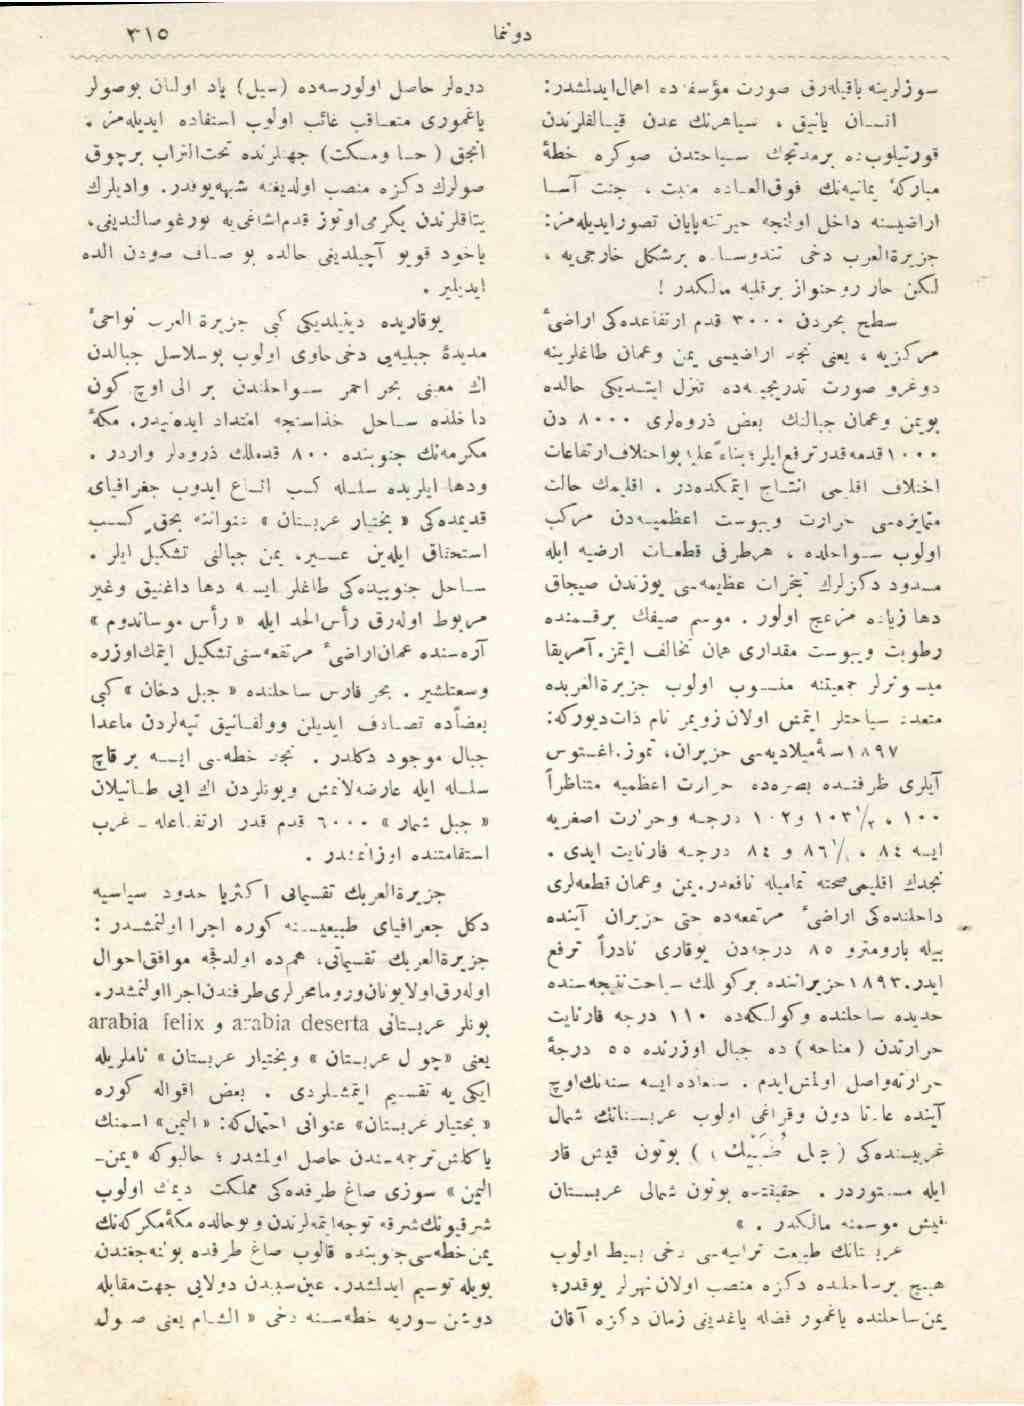 دونما
٣١٥
سوزلرینه باقیله‌رق صورت مؤسفه‌ده اهمال ایدلمشدر:
انسان یانیق ، سیاهرنك عدن قیالقلرندن
قورتیلوبده برمدتجك سیاحتدن صوکره خطهٔ
مبارکهٔ یمانیه‌نك فوق‌العاده منبت ، جنت آسا
اراضیسنه داخل اولنجه حیرتنه پایان تصور ایدیله‌مز:
جزیرة‌العرب دخی تندوساده برشکل خارجی‌یه ،
لکن حار روحنواز برقلبه مالکدر !
سطح بحردن ٣٠٠٠ قدم ارتفاعده‌کی اراضیٔ
مرکزیه ، یعنی نجد اراضیسی یمن وعمان طاغلرینه
دوغرو صورت تدریجیه‌ده تنزل ایتدیکی حالده
بویمن وعمان جبالنك بعض ذروه‌لری ٨٠٠٠ دن
١٠٠٠٠ قدمه قدر ترفع ایلر؛ بناءً علیه بو اختلاف ارتفاعات
اختلاف اقلیمی انتاج ایتمکده‌در . اقلیمك حالت
متمایزه‌سی حرارت ویبوست اعظمیه‌دن مرکب
اولوب سواحلده ، هرطرفی قطعات ارضیه ایله
مسدود دکزلرك تبخرات عظیمه‌سی یوزندن صیجاق
دها زیاده مزعج اولور . موسم صیفك برقسمنده
رطوبت ویبوست مقداری همان تخالف ایتمز. آمریقا
میسونرلر جمعیتنه منسوب اولوب جزیرة‌العربده
متعدد سیاحتلر ایتمش اولان زویمر نام ذات‌دیورکه:
١٨٩٧ سنهٔ میلادیه‌سی حزیران، تموز. اغستوس
آیلری ظرفنده بصره‌ده حرارت اعظمیه متناظراً
١٠٠ ، ١٠٣ ١/٢ و ١٠٢ درجه وحرارت اصغریه
ایسه ٨٤ ، ٨٦ ١/٢ و ٨٤ درجه فارنایت ایدی .
نجدك اقلیمی صحته تمامیله نافعدر. یمن وعمان قطعه‌لری
داخلنده‌کی اراضیٔ مرتفعه‌ده حتی حزیران آینده
بیله بارومترو ٨٥ درجه‌دن یوقاری نادراً ترفع
ایدر. ١٨٩٣ حزیراننده برکونلك سیاحت نتیجه‌سنده
حدیده ساحلنده وکولکه‌ده ١١٠ درجه فارنایت
حرارتدن ( مناحه ) ده جبال اوزرنده ٥٥ درجهٔ
حرارته واصل اولمش ایدم . صنعاده ایسه سنه‌نك اوچ
آینده عادتا دون وقراغی اولوب عربستانك شمال
غربیسنده‌کی ( جبل ) بوتون قیش قار
ایله مستوردر . حقیقتده بوتون شمالی عربستان
قیش موسمنه مالکدر . »
عربستانك طبیعت ترابیه‌سی دخی بسیط اولوب
هیچ برساحلنده دکزه منصب اولان نهرلر یوقدر؛
یمن ساحلنده یاغمور فضله یاغدیغی زمان دکزه آقان
دره‌لر حاصل اولورسه‌ده (سیل) یاد اولنان بوصولر
یاغموری متعاقب غائب اولوب استفاده ایدیله‌مز .
انجق ( حسا ومسکت) جهتلرنده تحت‌التراب برچوق
صولرك دکزه منصب اولدیغنه شبهه‌یوقدر. وادیلرك
یتاقلرندن یکرمی اوتوز قدم اشاغی‌یه بورغو صالندیغی،
یاخود قویو آچیلدیغی حالده بو صاف صودن الده
ایدیلیر .
یوقاریده دینیلدیکی کبی جزیرة العرب نواحیٔ
مدیدهٔ جبلیه‌یی دخی حاوی اولوب بوسلاسل جبالدن
اك معنبی بحر احمر سواحلندن بر الی اوچ کون
داخلده ساحل حذاسنجه امتداد ایده‌نیدر. مکهٔ
مکرمه‌نك جنوبنده ٨٠٠٠ قدملك ذروه‌لر واردر .
ودها ایلریده سلسله کسب اتساع ایدوب جغرافیای
قدیمده‌کی « بختیار عربستان » عنواننه بحق کسب
استحقاق ایله‌ین عسیر، یمن جبالنی تشکیل ایلر .
ساحل جنوبیده‌کی طاغلر ایسه دها داغنیق وغیر
مربوط اوله‌رق رأس‌الحد ایله « رأس موساندوم »
آره‌سنده عمان اراضیٔ مرتفعه‌سنی تشکیل ایتمك اوزره
وسعتلشیر . بحر فارس ساحلنده « جبل دخان » کبی
بعضاًده تصادف ایدیلن وولقانیق تپه‌لردن ماعدا
جبال موجود دکلدر . نجد خطه‌سی ایسه بر قاچ
سلسله ایله عارضه‌لانمش وبونلردن اك ایی طانیلان
« جبل شمار » ٦٠٠٠ قدم قدر ارتفاعله ـ غرب
استقامتنده اوزانمشدر .
جزیرة‌العربك تقسیماتی اکثریا حدود سیاسیه
دکل جغرافیای طبیعیسنه کوره اجرا اولنمشدر :
جزیرة‌العربك تقسیماتی، هم‌ده اولدقجه موافق‌احوال
اوله‌رق اولا یونان وروما محرلری طرفندن اجرا اولنمشدر.
بونلر عربستانی arabia deserta و arabia felix
یعنی «چول عربستان » وبختیار عربستان » ناملریله
ایکی یه تقسیم ایتمشلردی . بعض اقواله کوره
« بختیار عربستان» عنوانی احتمال‌که: « الیمن» اسمنك
یاکلش ترجمه‌سندن حاصل اولمشدر ؛ حالبوکه «یمن ـ
الیمن » سوزی صاغ طرفده‌کی مملکت دیمك اولوب
شرقیونك شرقه توجه ایتمه‌لرندن و بوحالده مکهٔ مکرمه‌نك
یمن خطه‌سی جنوبنده قالوب صاغ طرفده بولنه‌جغندن
بویله توسیم ایدلمشدر. عین سببدن دولایی جهت مقابله
دوشن سوریه خطه‌سنه دخی « الشام یعنی صول